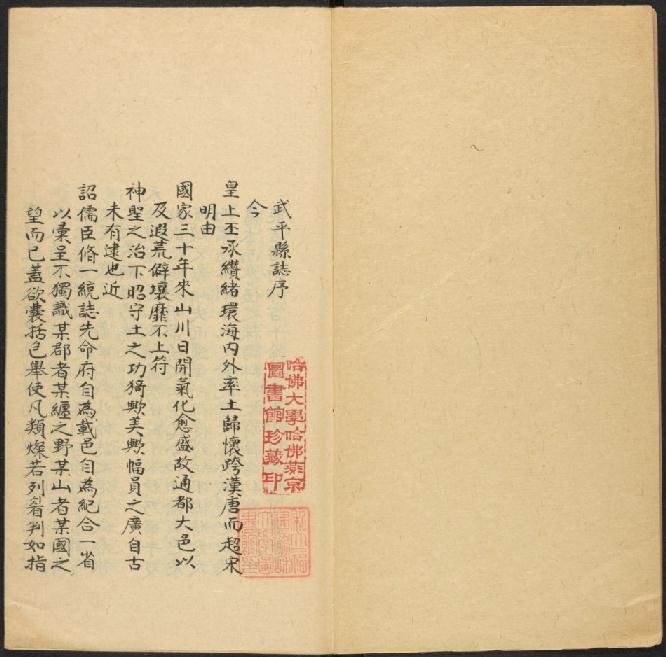 武平縣誌序
今
皇上丕承纘緒環海內外率土歸懷跨漢唐而超宋
明由
國家三十年來山川日開氣化愈盛故通都大邑以
及遐荒僻壤靡不上符
神聖之治下昭守土之功猗歟美歟幅員之廣自古
未有逮也近
詔儒臣脩一統誌先命府自為載邑自為紀合一省
以彙呈不獨識某郡者某纏之野某山者某國之
望而已蓋欲囊括包舉使凡類燦若列眉判如指
哈佛大學哈佛燕京
圖書館珍藏印